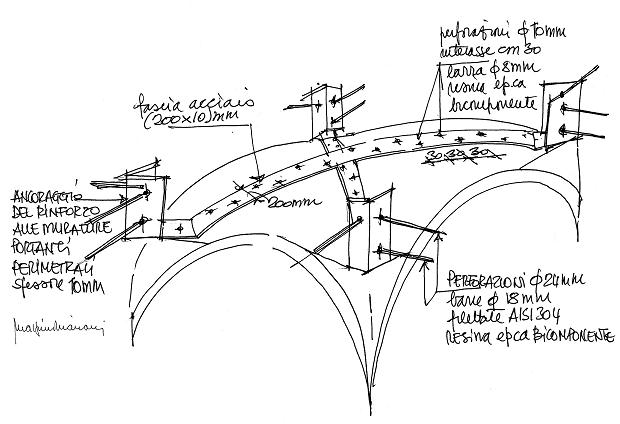 perforazioni φ 10mm
interasse cm 30
barra φ 8mm
resina epca
bicomponente
fascia acciaio
(200x10)mm
30 30 30
200mm
ANCORAGGIO
DEL RINFORZO
ALLE MURATURE
PORTANTI
PERIMETRALI
spessore 10mm
PERFORAZIONI φ 24mm
barre φ 18mm
filettate AISI 304
RESINA epca BICOMPONENTE